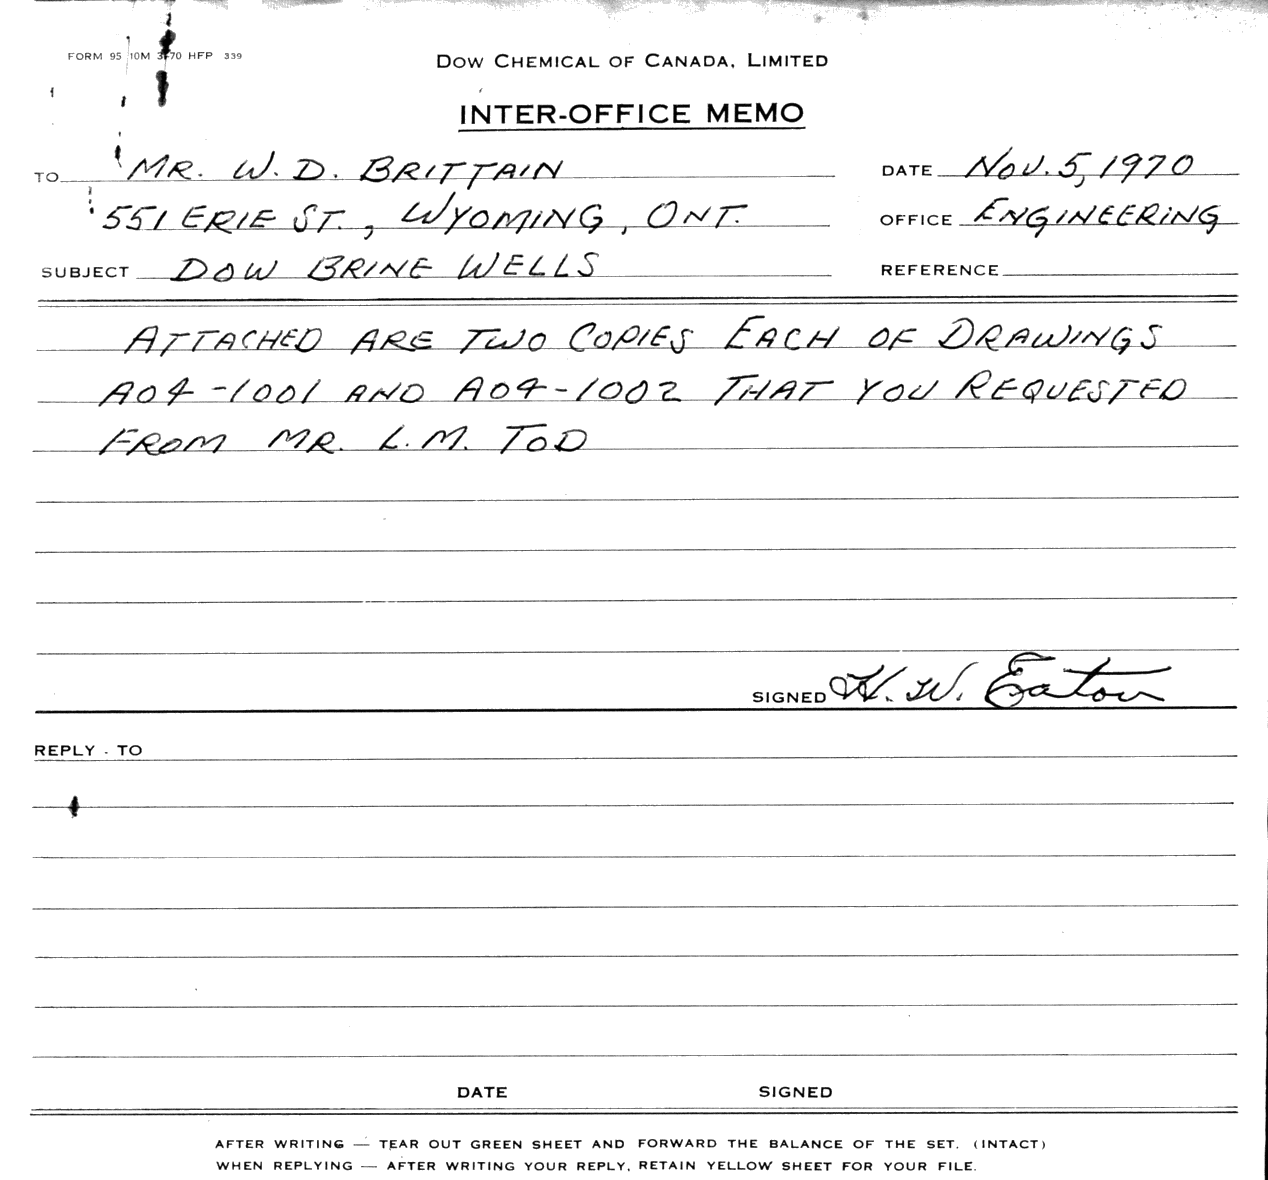 FORM 95 10M 3-70 HFP 339
DOW CHEMICAL OF CANADA, LIMITED
INTER-OFFICE MEMO
TO MR. W. D. BRITTAIN DATE NOV. 5, 1970
551 ERIE ST., WYOMING, ONT. OFFICE ENGINEERING
SUBJECT DOW BRINE WELLS REFERENCE
ATTACHED ARE TWO COPIES EACH OF DRAWINGS
A04-1001 AND A04-1002 THAT YOU REQUESTED
FROM MR. L. M. TOD
SIGNED H. W. Eaton
REPLY - TO
DATE SIGNED
AFTER WRITING — TEAR OUT GREEN SHEET AND FORWARD THE BALANCE OF THE SET. (INTACT)
WHEN REPLYING — AFTER WRITING YOUR REPLY, RETAIN YELLOW SHEET FOR YOUR FILE.